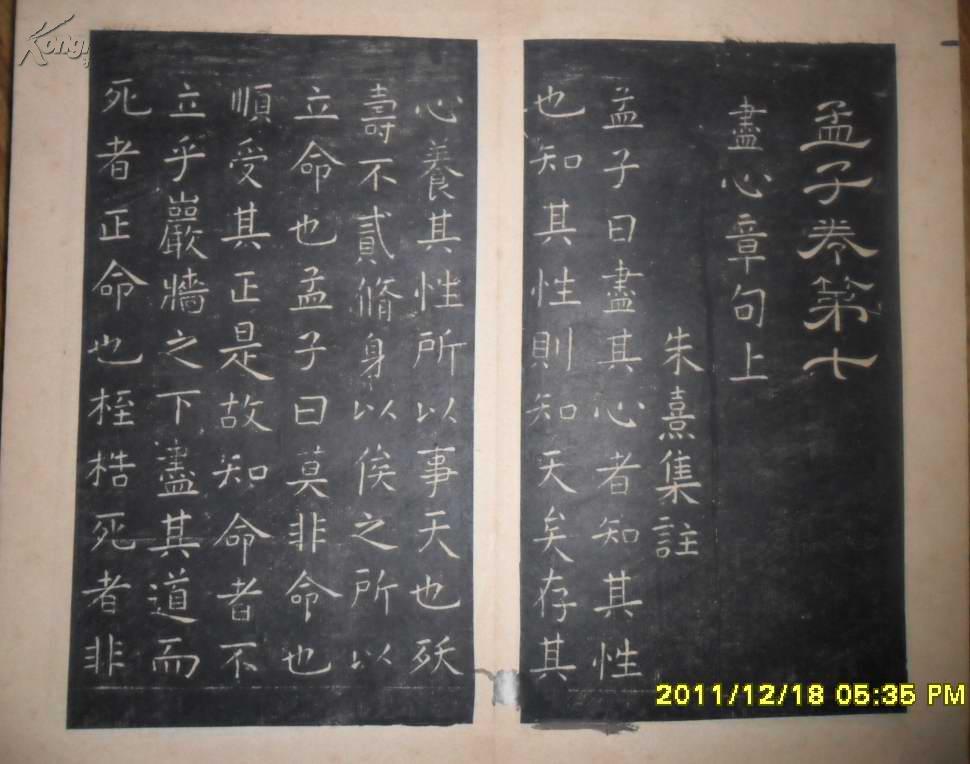 孟子卷第七
盡心章句上
朱熹集註
孟子曰盡其心者知其性
也知其性則知天矣存其
心養其性所以事天也殀
壽不貳脩身以俟之所以
立命也孟子曰莫非命也
順受其正是故知命者不
立乎巖牆之下盡其道而
死者正命也桎梏死者非
2011/12/18 05:35 PM